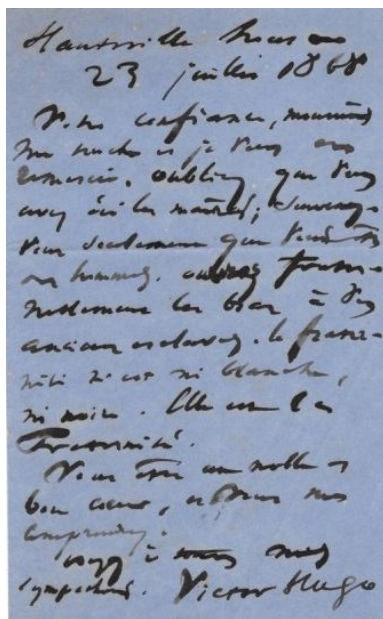 Hauteville House
23 juillet 1868
Votre confiance, monsieur,
me touche et je vous en
remercie. oubliez que vous
avez été les maîtres; souvenez-
vous seulement que vous êtes
des hommes. ouvrez frater-
nellement les bras à vos
anciens esclaves. la frater-
nité n'est ni blanche,
ni noire. Elle est la
Fraternité.
Vous êtes un noble et
bon cœur, et vous me
comprendrez.
croyez à mes
sympathies. Victor Hugo